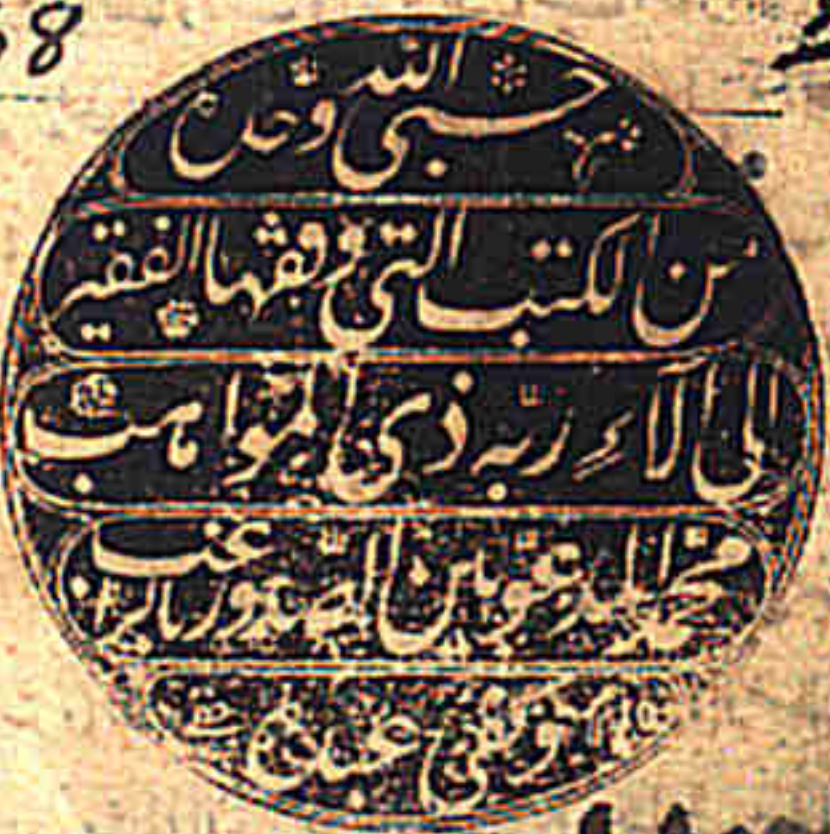 8
حسبي الله وحده
من الكتب التي وقفها الفقير
الى آلاء ربه ذي المواهب
محمد المدعو بين الصدور بالراغب